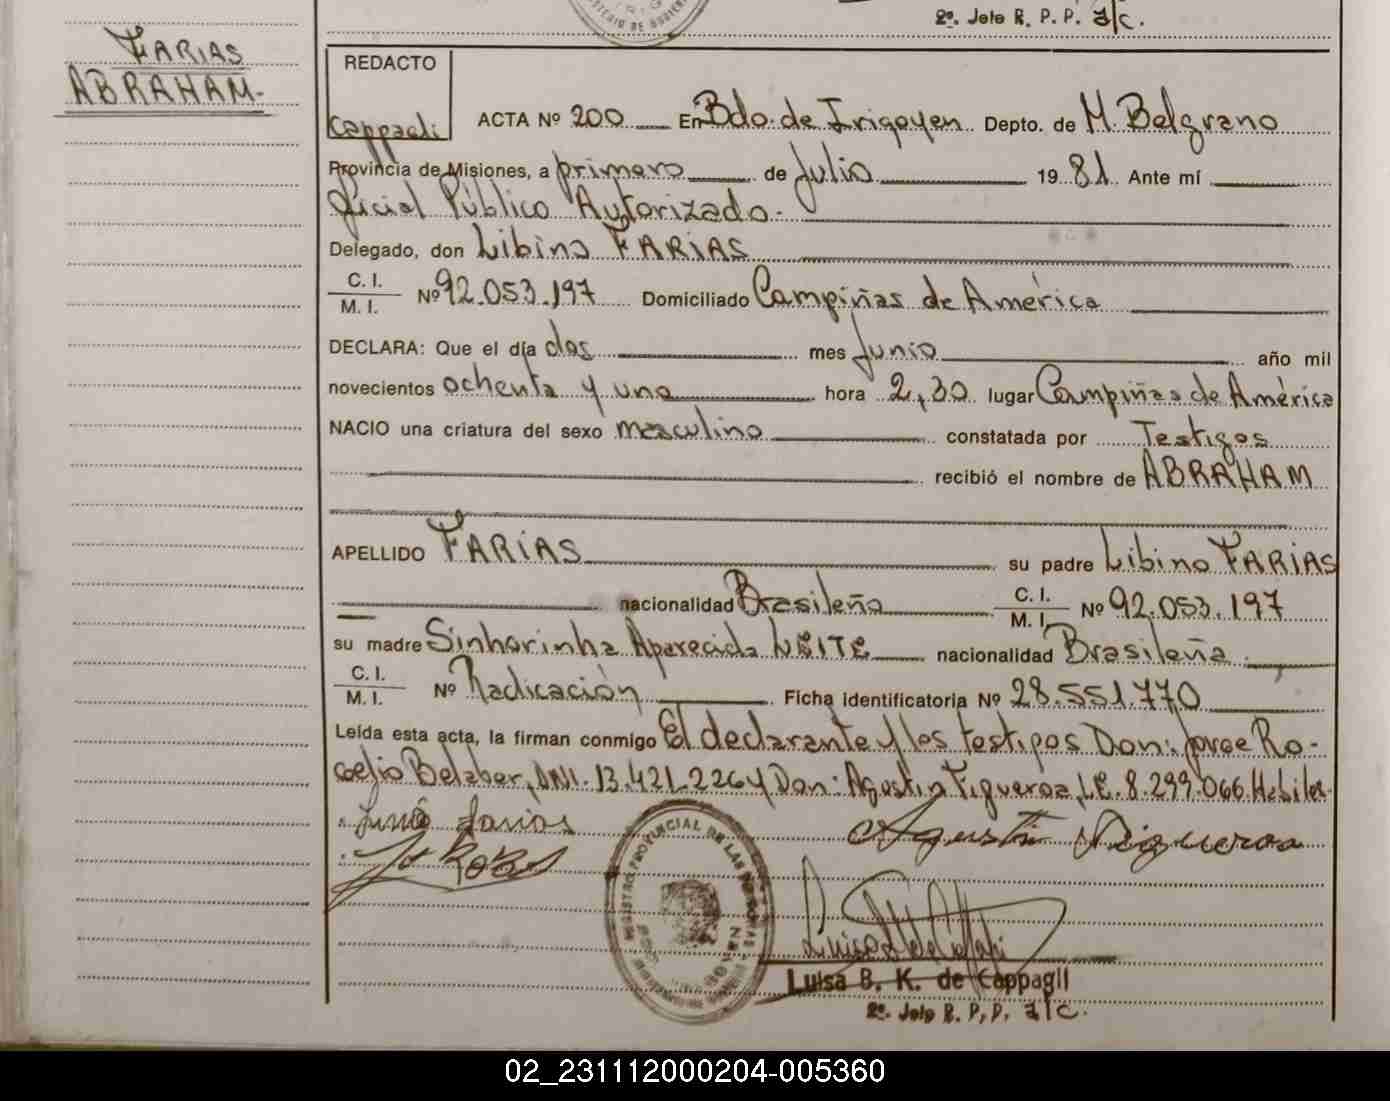 2º. Jefe R. P. P. a/c.
FARIAS
ABRAHAM.
REDACTO
Cappagli
ACTA Nº 200 En Bdo. de Irigoyen Depto. de M. Belgrano
Provincia de Misiones, a primero de Julio 19 81 Ante mí
Oficial Público Autorizado.
Delegado, don Libino FARIAS
C. I.
M. I. Nº 92.053.197 Domiciliado Campiñas de América
DECLARA: Que el día dos mes Junio año mil
novecientos ochenta y uno hora 2,30 lugar Campiñas de América
NACIO una criatura del sexo masculino constatada por Testigos
recibió el nombre de ABRAHAM
APELLIDO FARIAS su padre Libino FARIAS
nacionalidad Brasileña C. I. M. I. Nº 92.053.197
su madre Sinhorinha Aparecida LEITE nacionalidad Brasileña.
C. I.
M. I. Nº Radicación Ficha identificatoria Nº 28.551.770
Leída esta acta, la firman conmigo El declarante y los testigos Don: Jorge Ro-
Belaber, DNI. 13.421.226 y Don: Agustin Figueroa, L.E. 8.299.066. Habiles-
Farias Agustin Figueroa
REGISTRO PROVINCIAL DE LAS PERSONAS
Luisa B. K. de Cappagli
2º. Jefe R. P. P. a/c.
02_231112000204-005360